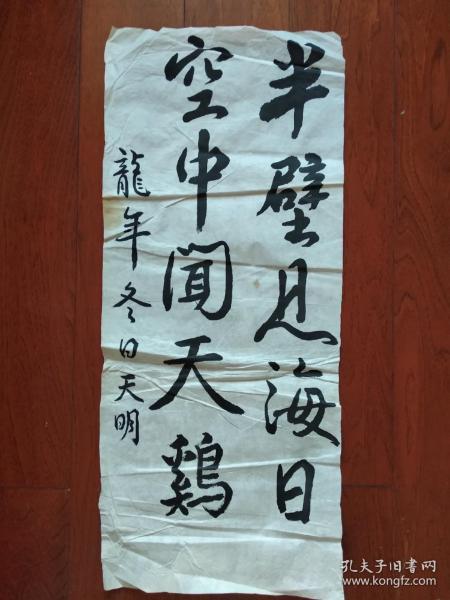 半壁見海日
空中聞天鷄
龍年冬日天明
孔夫子旧书网
www.kongfz.com